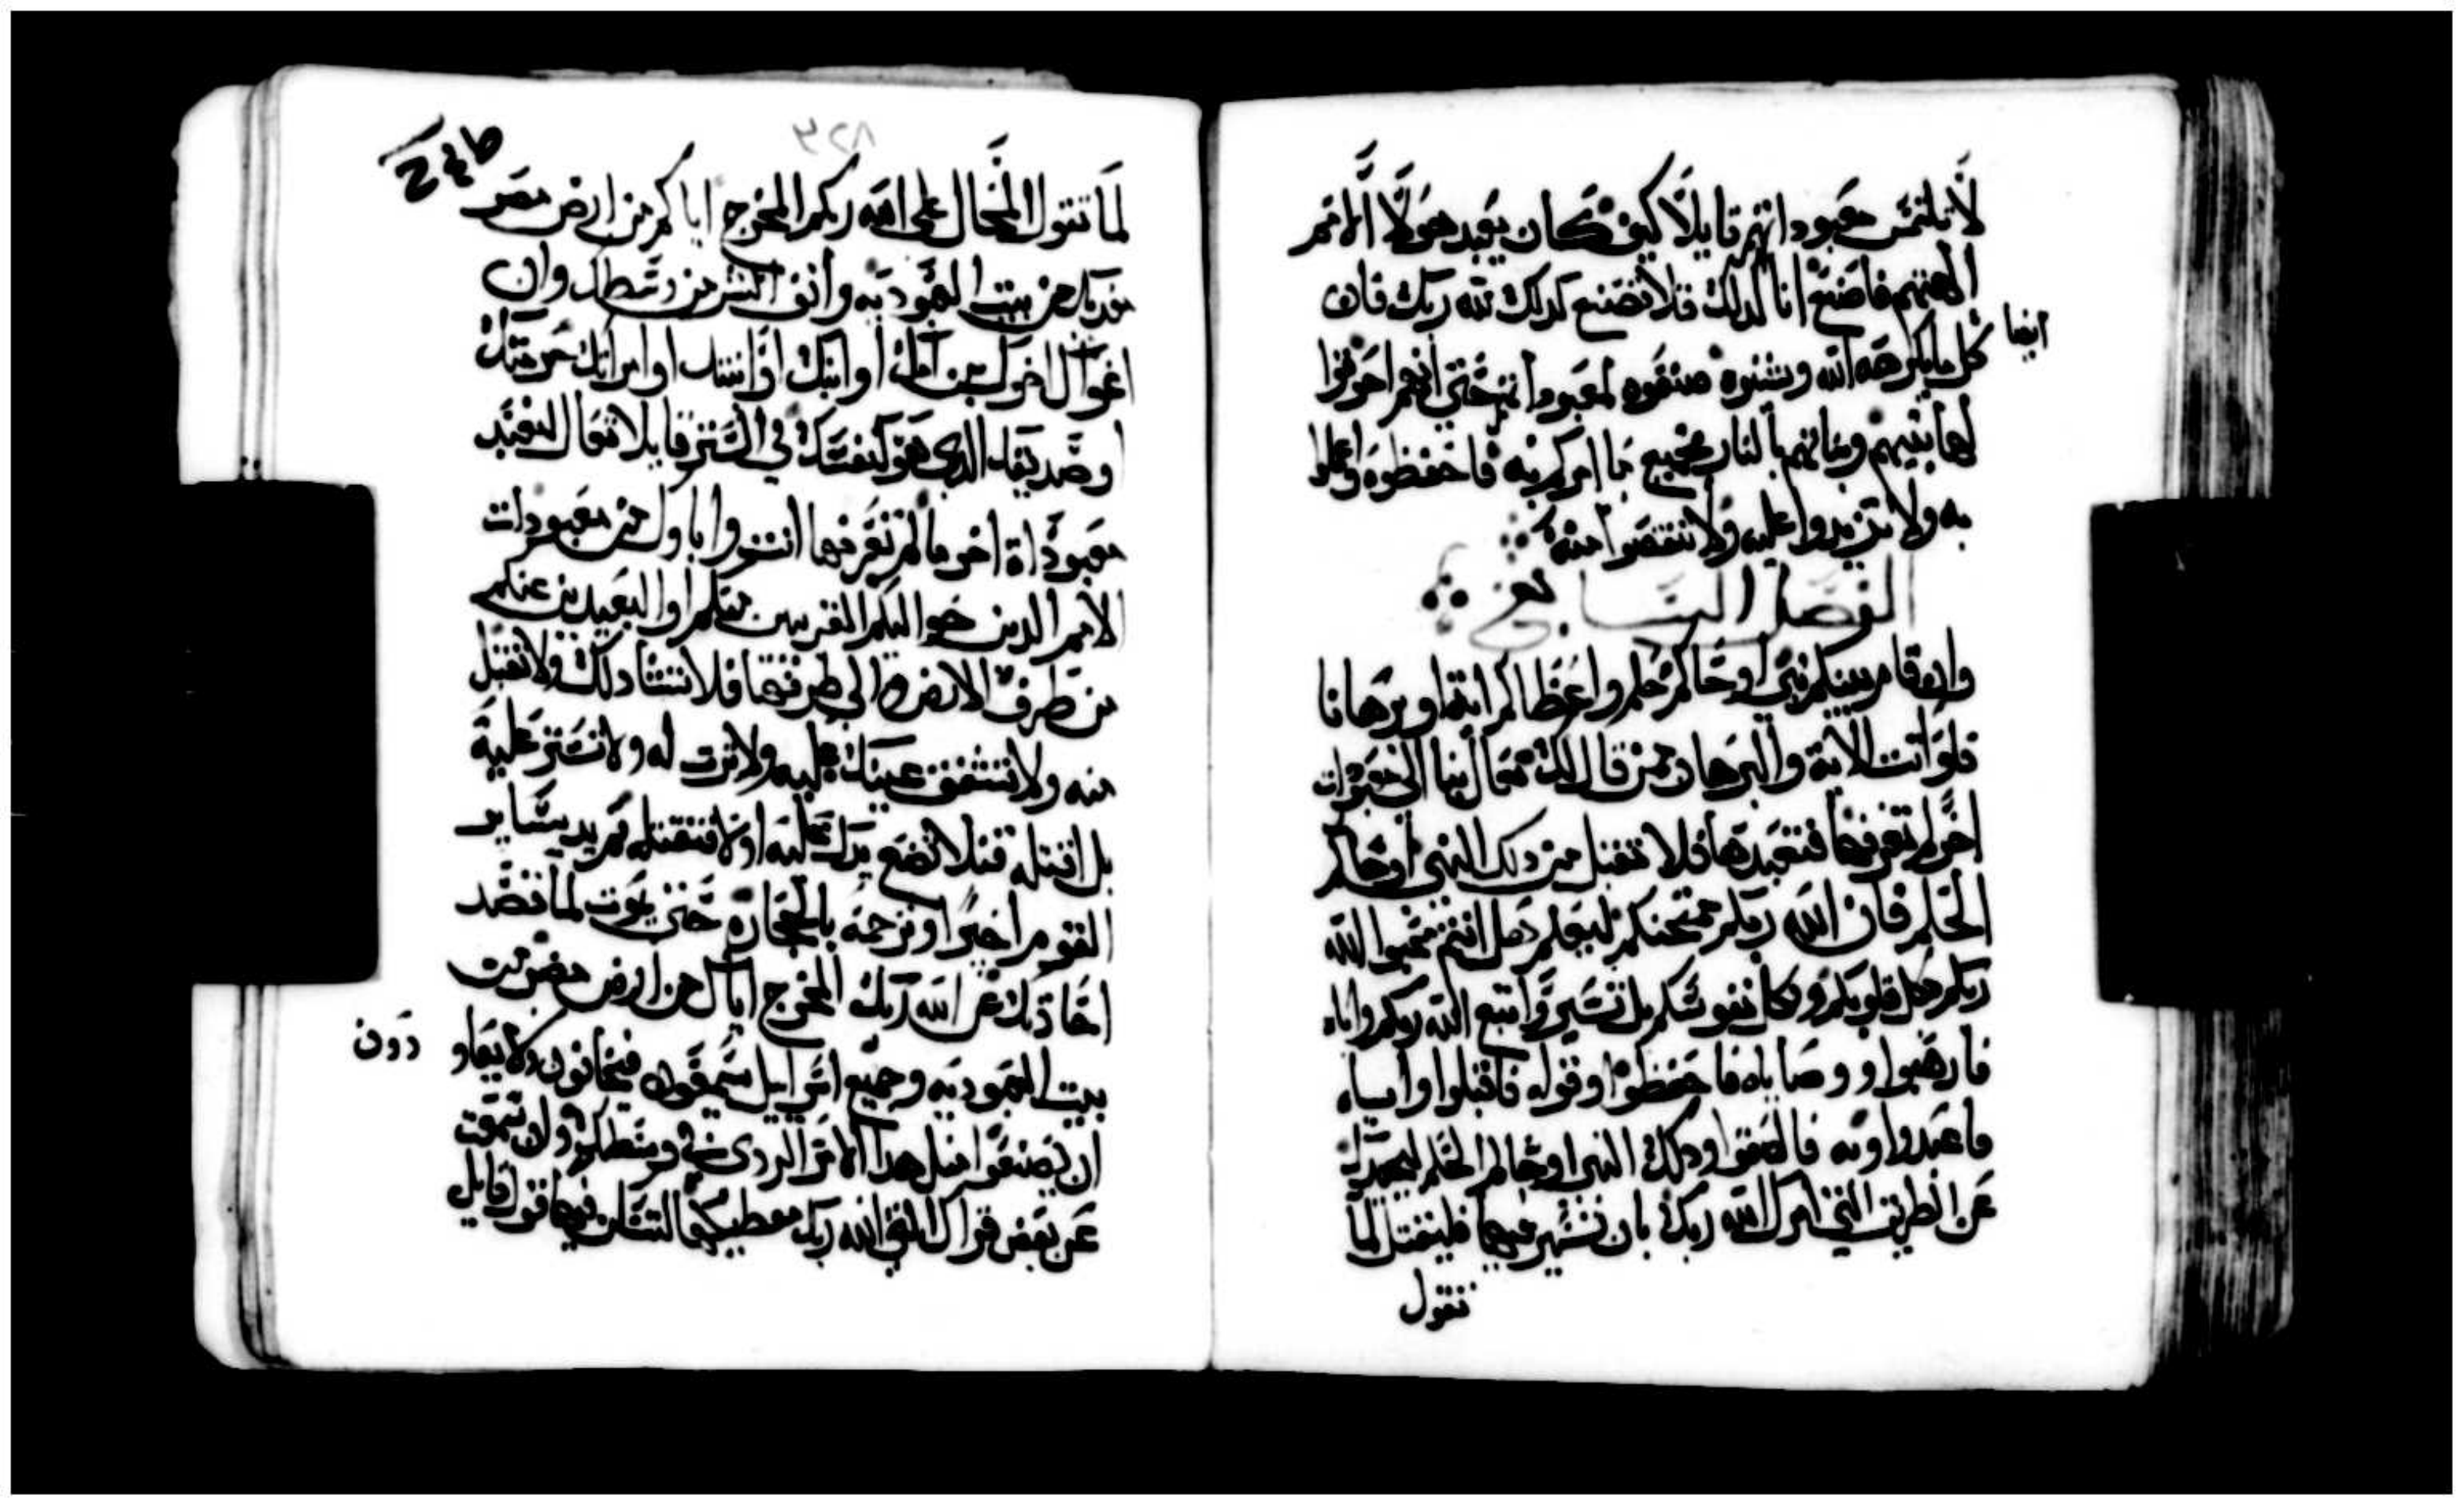 لا تلتمس معبوداتهم قايلا كيف كان يعبد هولا الامم
الهتهم فاصنع انا كدلك فلا تصنع كدلك لله ربك فان
ايضا
كل ما يكرهه الله ويشنوه صنعوه لمعبوداتهم حتى انهم احرقوا
لها بنيهم وبناتهم بالنار فجميع ما امركم به فاحفظوه واعملوا
به ولا تزيدوا عليه ولا تنقصوا منه
الفصل السابع
وان قام بينكم نبي او حالم حلم واعظاكم اية او برهانا
فلو اتت الاية والبرهان ممن قال لك تعال بنا الى معبودات
اخر لم تعرفها فنعبدها فلا تقبل من دلك النبي او حالم
الحلم فان الله ربكم ممتحنكم ليعلم هل انتم تحبوا الله
ربكم بكل قلوبكم وبكل نفوسكم بل تسير واتبع الله ربكم واياه
فارهبوا ووصاياه فاحفظوا وقوله فاقبلوا واياه
فاعبدوا وبه فالصقوا ودلك النبي او حالم الحلم ليصدك
عن الطريق التي امرك الله ربك بان تسير فيها فليقتل لما
تقول
لما تقول المحال على الله ربكم المخرج اياكم من ارض مصر
مفديك من بيت العبوديه وانف الشر من وسطك وان
اغواك اخوك بن امك او ابنك او ابنتك او امراتك حرمتك
او صديقك الدي هو كنفسك في الستر قايلا تعال لنعبد
معبوداة اخر ما لم تعرفها انت واباوك من معبودات
الامم الدين حواليكم القريبين منكم او البعيدين عنكم
من طرف الارض الى طرفها فلا تشا دلك ولا تقبل
منه ولا تشفق عينك عليه ولا ترت له ولا تستر عليه
بل اقتله قتلا تضع يدك عليه اولا فتقتله ثم يد ساير
القوم اخيرا وترجمه بالحجاره حتى يموت لما قصد
اخادتك عن الله ربك المخرج اياك من ارض مصر من
بيت العبوديه وجميع اسراييل يسمعون فيخافون ولا يعاو
دون
ان يصنعوا مثل هدا الامر الردى في وسطك وان سمعت
عن بعض قراك التي الله ربك معطيكها لتسكن فيها قول قايل